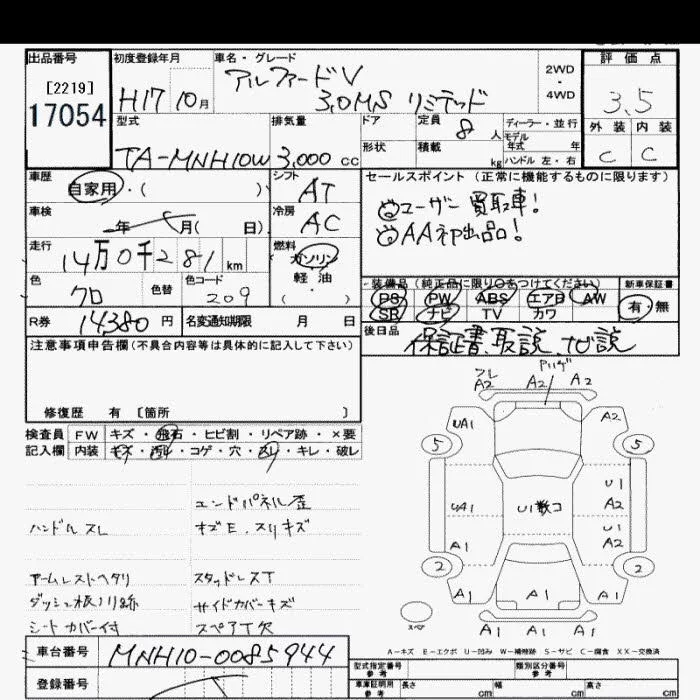 出品番号 初度登録年月 車名・グレード 評価点
[2219]
17054
H17 10月
アルファードV
3.0MS リミテッド
2WD
・
4WD
3.5
外装 内装
C C
型式 排気量 ドア 定員 8人 ディーラー・並行
モデル
年式 年
形状 積載 kg ハンドル 左・右
TA-MNH10W 3,000cc
車歴 シフト セールスポイント(正常に機能するものに限ります)
自家用・( ) AT
ユーザー買取車!
車検 冷房
年 月( 日) AC
AA初出品!
走行 燃料
14万0千281km ガソリン
軽油・
( )
色 色替 色コード
クロ 209
装備品(純正品に限り○をつけてください) 新車保証書
PS PW ABS エアB AW 有・無
SR ナビ TV カワ
R券 14380円 名変通知期限 月 日
後日品 保証書、取説、ナビ説
注意事項申告欄(不具合内容等は具体的に記入して下さい)
修復歴 有 〔箇所 〕
検査員 FW キズ・飛石・ヒビ割・リペア跡・×要
記入欄 内装 キズ・汚れ・コゲ・穴・スレ・キレ・破レ
エンドパネル歪
ハンドルスレ キズE.スリキズ
アームレストヘタリ スタッドレスT
ダッシュ板ノリ跡 サイドカバーキズ
シートカバー付 スペアT欠
A2 A2 A2
UA1 A2
5 5
U1
A2
UA1 U1数コ
U1
A2
A1
2 2
A1 A1 A1
スペア
A1 A1 A1
A=キズ E=エクボ U=凹み W=補修跡 S=サビ C=腐食 XX=交換済
車台番号 MNH10-0085944
登録番号
型式指定番号 類別区分番号
参考 参考
車庫証明用 長さ 幅 高さ
参考 cm cm cm